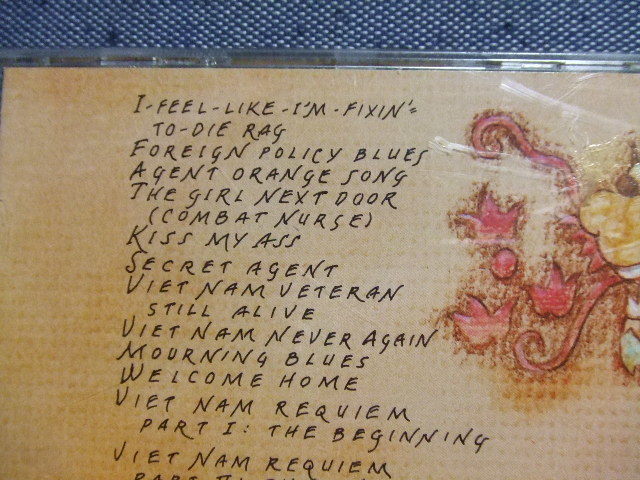 I-FEEL-LIKE-I'M-FIXIN'-
TO-DIE RAG
FOREIGN POLICY BLUES
AGENT ORANGE SONG
THE GIRL NEXT DOOR
(COMBAT NURSE)
KISS MY ASS
SECRET AGENT
VIET NAM VETERAN
STILL ALIVE
VIET NAM NEVER AGAIN
MOURNING BLUES
WELCOME HOME
VIET NAM REQUIEM
PART I: THE BEGINNING
VIET NAM REQUIEM